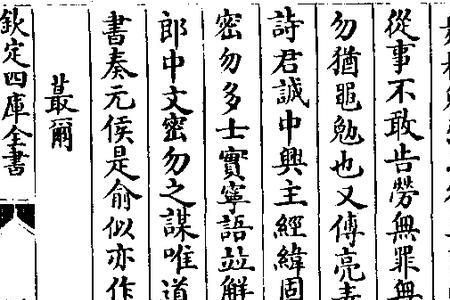 從事不敢告勞無罪無
勿猶黽勉也又傅亮表
詩君誠中興主經緯固
密勿多士實寧語並解
郎中文密勿之謀唯道
書奏元侯是俞似亦作
蕞爾
欽定四庫全書